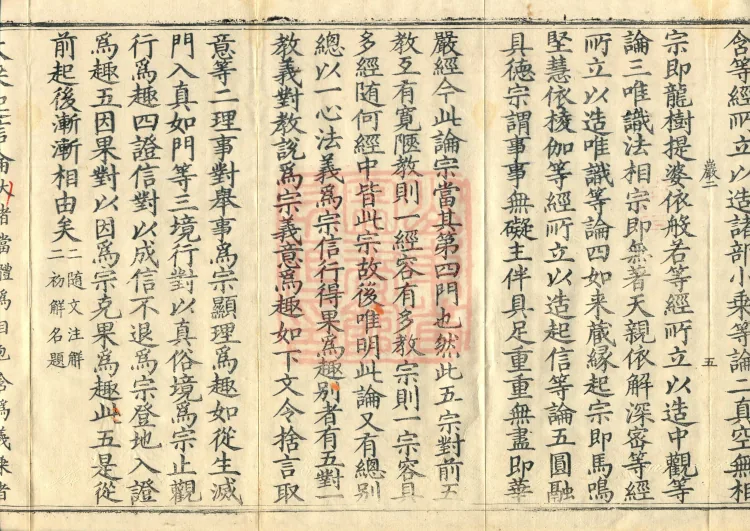 含等經所立以造諸部小乘等論二真空無相
巖二
五
宗即龍樹提婆依般若等經所立以造中觀等
論三唯識法相宗即無著天親依解深密等經
所立以造唯識等論四如来蔵縁起宗即馬鳴
堅慧依楞伽等經所立以造起信等論五圓融
具德宗謂事事無礙主伴具足重重無盡即華
嚴經今此論宗當其第四門也然此五宗對前五
教互有寬陿教則一經容有多教宗則一宗容具
多經随何經中皆此宗故後唯明此論又有總别
總以一心法義爲宗信行得果爲趣别者有五對一
教義對教説爲宗義意爲趣如下文令捨言取
意等二理事對舉事爲宗顯理爲趣如從生滅
門入真如門等三境行對以真俗境爲宗止觀
行爲趣四證信對以成信不退爲宗登地入證
爲趣五因果對以因爲宗克果爲趣此五是從
前起後漸漸相由矣
二随文注解
二初解名題
大乘起信論大者當體爲目包含爲義乘者